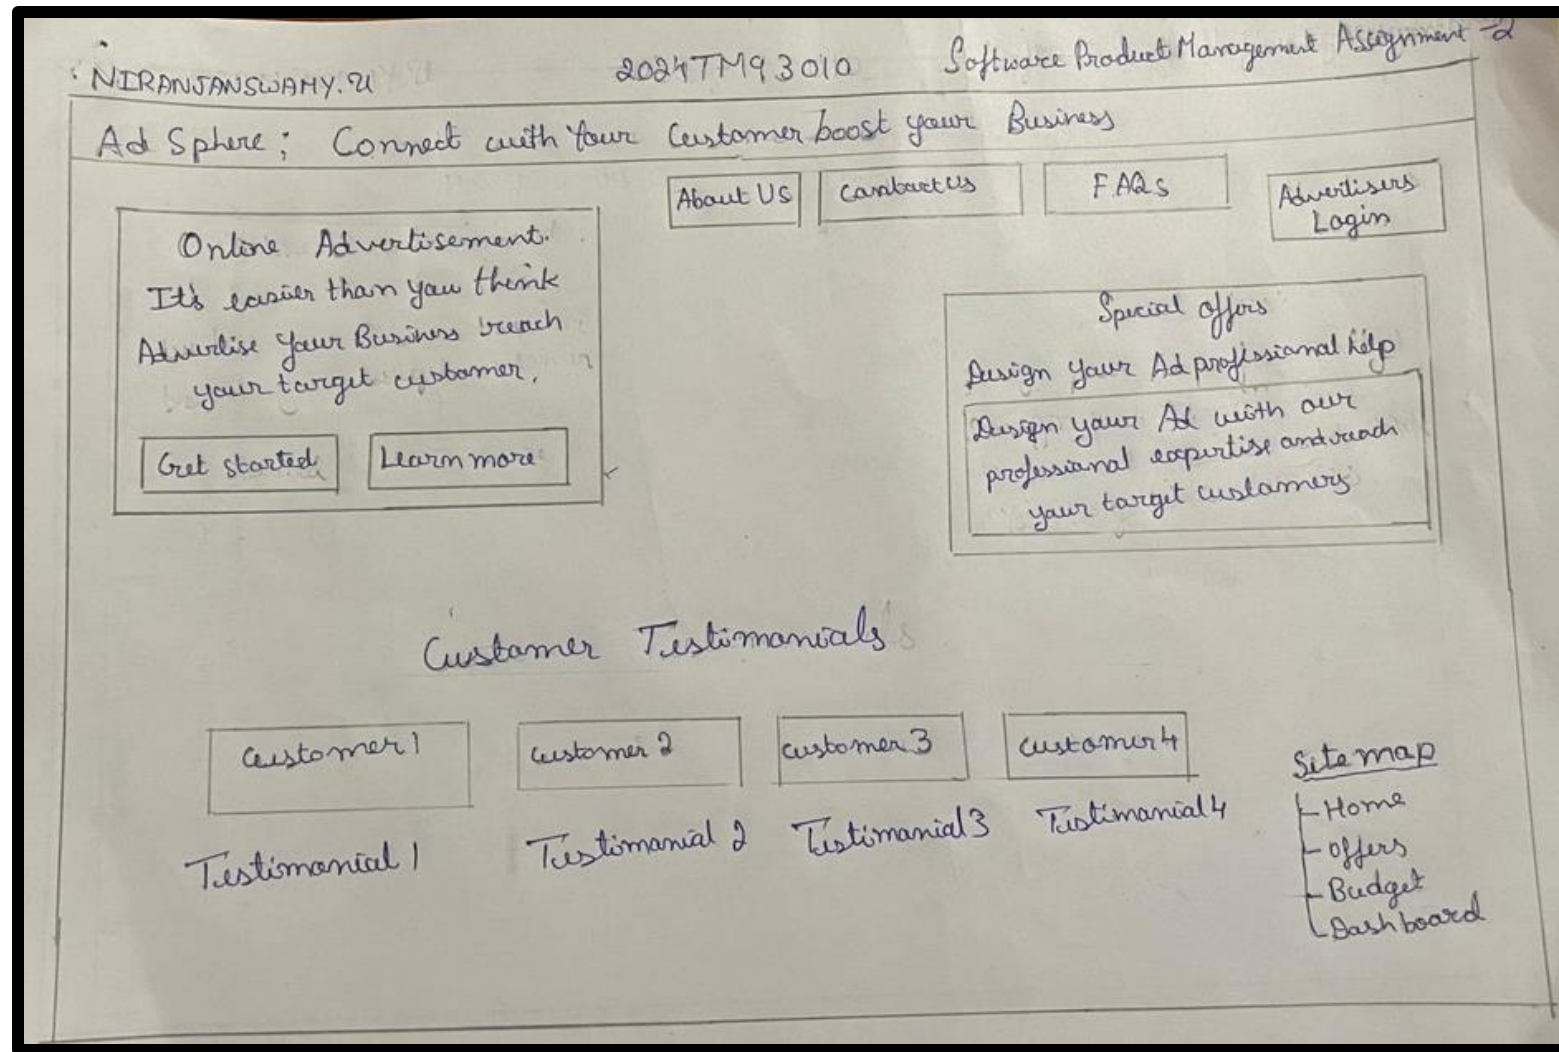 NIRANJANSWAMY.U 2024TM93010 Software Product Management Assignment -2
Ad Sphere; Connect with Your Customer boost your Business
About Us Contact Us F.AQs Advertisers
Login
Online Advertisement.
It's easier than you think
Advertise Your Business reach
your target customer.
Get started Learn more
Special offers
Design your Ad professional help
Design your Ad with our
professional expertise and reach
your target customers
Customer Testimonials
Customer 1 Customer 2 customer 3 customer 4
Testimonial 1 Testimonial 2 Testimonial 3 Testimonial 4
Site map
Home
offers
Budget
Dashboard